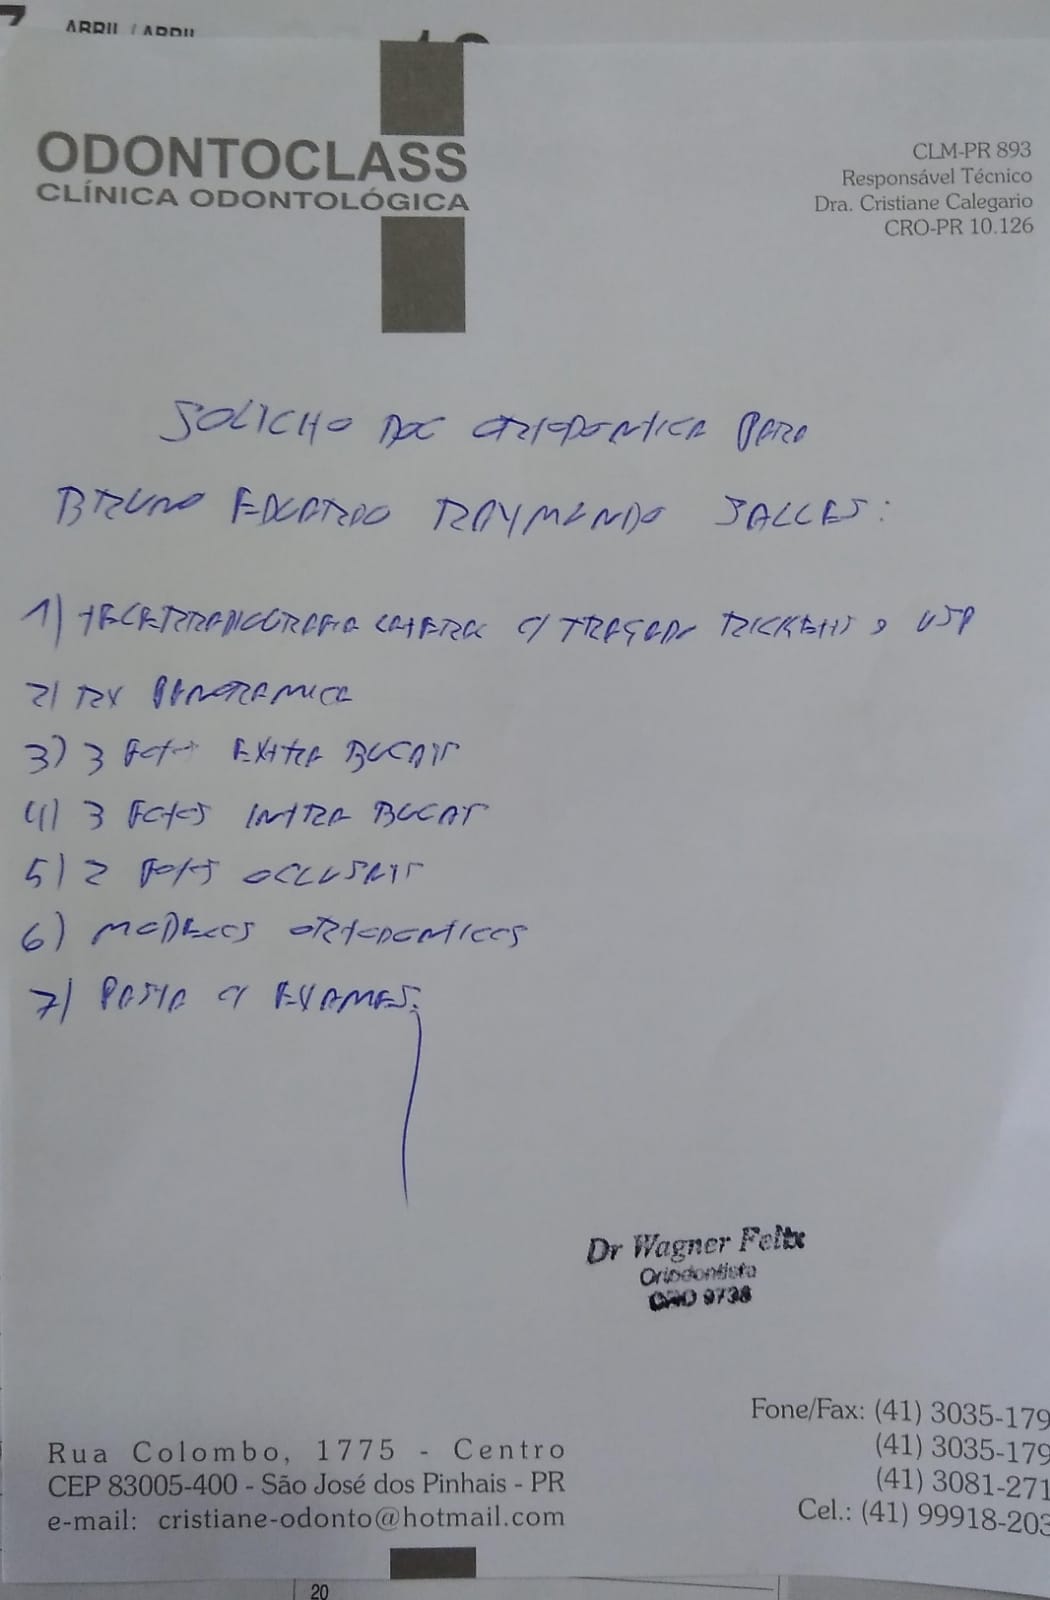 ABRIL / ABRIL
ODONTOCLASS
CLÍNICA ODONTOLÓGICA
CLM-PR 893
Responsável Técnico
Dra. Cristiane Calegario
CRO-PR 10.126
SOLICITO DOC ORTODONTICA PARA
BRUNO EDUARDO RAYMUNDO SALLES:
1) TELERRADIOGRAFIA LATERAL C/ TRAÇADO RICKETTS E USP
2) RX PANORAMICA
3) 3 FOTOS EXTRA BUCAIS
4) 3 FOTOS INTRA BUCAIS
5) 2 FOTOS OCLUSAIS
6) MODELOS ORTODONTICOS
7) PASTA C/ EXAMES.
Dr Wagner Felix
Ortodontista
CRO 9738
Rua Colombo, 1775 - Centro
CEP 83005-400 - São José dos Pinhais - PR
e-mail: cristiane-odonto@hotmail.com
Fone/Fax: (41) 3035-179
(41) 3035-179
(41) 3081-271
Cel.: (41) 99918-203
20